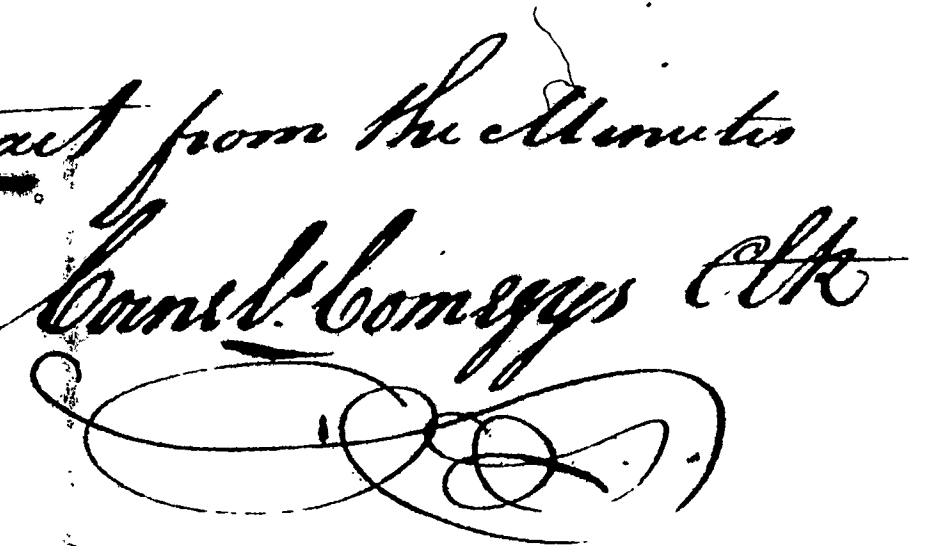 from the Minutes
Cornels. Comegys Clk